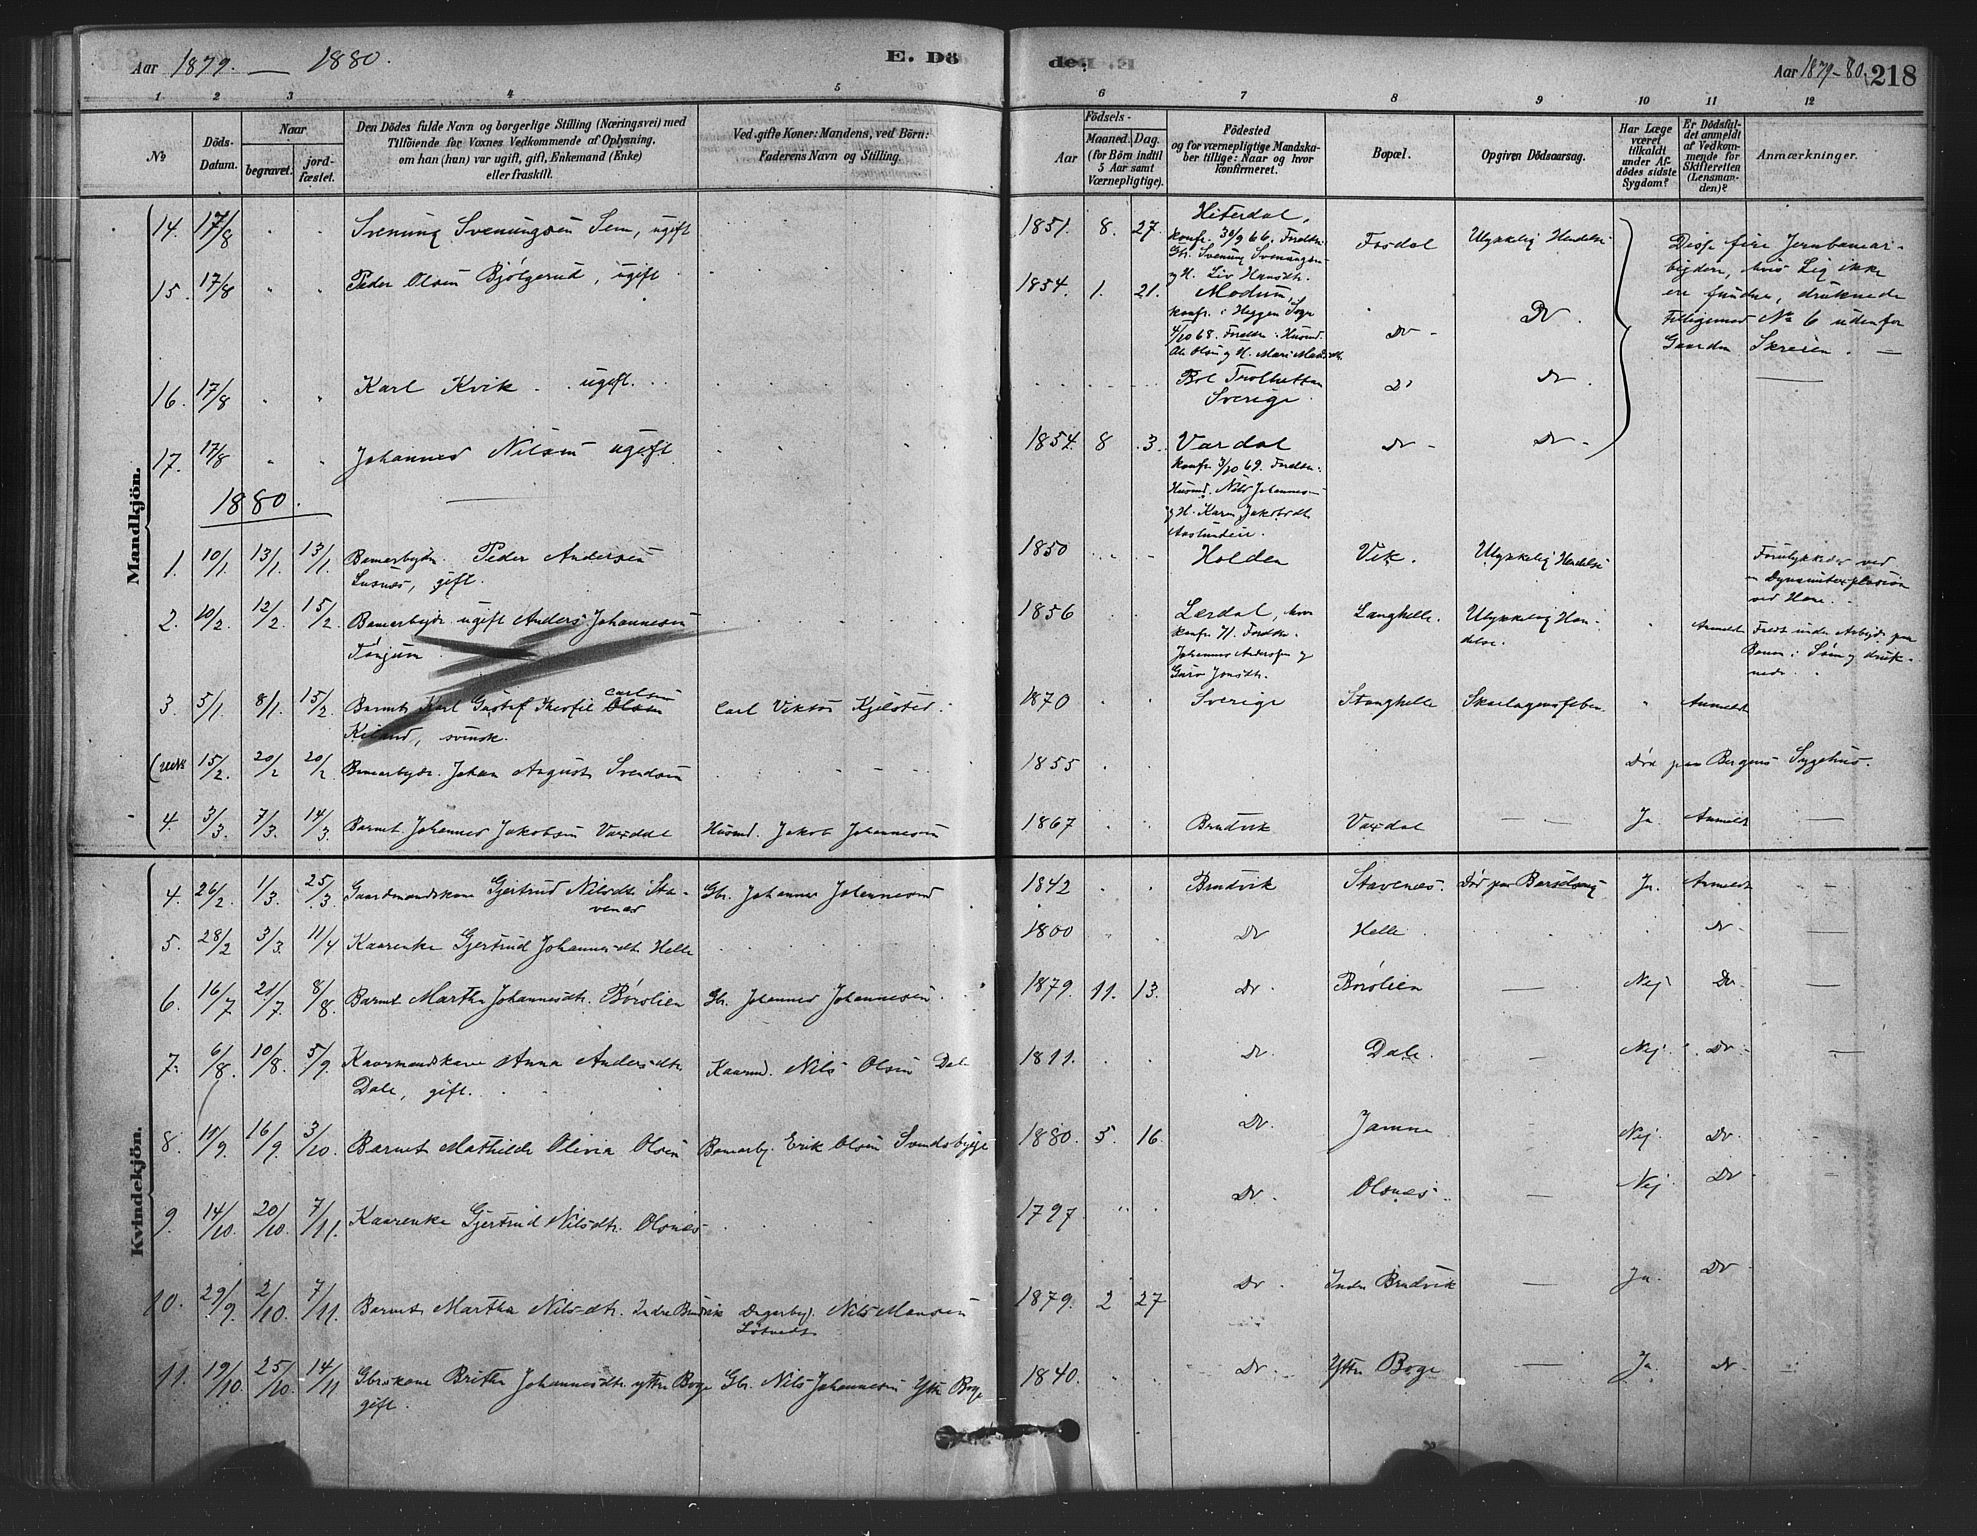 Aar 1879. — 1880.
E. Dö
de.
Aar 1879-80. 218
1 2 3 4 5 6 7 8 9 10 11 12
No
Döds-Datum.
Naar
begravet.
jord-fæstet.
Den Dödes fulde Navn og borgerlige Stilling (Næringsvei) med
Tilföiende for Voxnes Vedkommende af Oplysning,
om han (hun) var ugift, gift, Enkemand (Enke)
eller fraskilt.
Ved gifte Koner: Mandens, ved Börn:
Faderens Navn og Stilling.
Födsels-
Aar
Maaned. Dag.
(for Börn indtil
5 Aar samt
Værnepligtige).
Födested
og for værnepligtige Mandska-
ber tillige: Naar og hvor
konfirmeret.
Bopæl.
Opgiven Dödsaarsag.
Har Læge
været
tilkaldt
under Af-
dödes sidste
Sygdom?
Er Dödsful-
det anmeldt
af Vedkom-
mende for
Skifteretten
(Lensman-
den)?
Anmærkninger.
Mandkjön.
14. 17/8 " " Svenung Svenungsen Sem, ugift 1851. 8. 27. Hiterdal,
konfr. 30/9 66. Foreldre:
Gbr. Svenung Svenungsen
og H. Liv Hansdtr.
Fosdal Ulykkelig Hendelse
Disse fire Jernbanear-
bejdere, hvis Lig ikke
ere fundne, druknede
tilligemed No 6 udenfor
Gaarden Skreien. —
15. 17/8 " " Peder Olsen Bjölgerud, ugift 1854. 1. 21. Modum,
konfr. i Heggen Sogn
4/10 68. Foreldre: Husmd.
Ole Olsen og H. Mari Madsdtr.
Do - Do.
16. 17/8 " " Karl Kvik. ugift. Bol Trolhettan
Sverige. Do Do.
17. 17/8 " " Johannes Nilsen ugift. 1854. 8 3. Vardal
konfr. 3/10 69. Foreldre:
Husmd. Nils Johannesen
og H. Karen Jakobsdtr.
Do - Do -
1880.
1. 10/1 13/1. 13/1. Banearbejder. Peder Andersen
Lusnæs, gift. 1850 Holden Vik. Ulykkelig Hendelse
Forulykkede ved
en Dynamitexplosion
ved Herre.
2. 10/2 12/2 15/2. Banearbejdr. ugift Anders Johannesen
Tönjum 1856 Lerdal,
konfr. 71. Foreldre:
Johannes Andersen og
Guro Jonsdtr.
Langhelle. Ulykkelig Hen-
delse. " Anmeldt
under Arbejde paa
Banen i Söen og druk-
nede.
3. 5/1. 8/1. 15/2. Barnet Karl Gustaf Theofil Olsen Carlsen
Kiland, svensk. Carl Viktor Kjelsted. 1870 Sverige Stanghelle Skarlagensfeber. " Anmeldt
15/2. 20/2 20/2. Banearbejdr. Johan August Svendsen 1855 Död paa Bergens Sygehus.
4. 3/3. 7/3. 14/3. Barnet Johannes Jakobsen Vaxdal Husmd. Jakob Johannesen 1867 Bruvik Vaxdal — — Ja Anmeldt —
Kvindekjön.
4. 26/2. 1/3. 25/3. Gaardmandskone Gjertrud Nilsdtr. Sta-
venæs Gbr. Johannes Johannesen 1842 Bruvik Stavenæs. Död paa Barselseng Ja. Anmeldt —
5. 28/2 3/3. 11/4 Kaarenke Gjertrud Johannesdtr. Helle 1800 Do Helle Do. —
6. 16/7 21/7. 8/8. Barnet Martha Johannesdtr. Börslien Gbr. Johannes Johannesen. 1879. 11. 13. Do. Börslien — Nej Do. —
7. 6/8. 10/8. 5/9. Kaarmandskone Anna Andersdtr.
Dale, gift. Kaarmd. Nils Olsen Dale 1811. Do. Dale. — Nej. Do. —
8. 11/9. 16/9. 3/10. Barnet Mathilde Olivia Olsen Banearbj. Erik Olsen Svendsbygge 1880. 5. 16. Do. Jamne Nej. Do.
9. 14/10. 20/10. 7/11. Kaarenke Gjertrud Nilsdtr. Olsnes 1797 Do. Olsnes. — Nej. Do
10. 29/9. 2/10. 7/11. Barnet Martha Nilsdtr. Indre Bruvik Dagarbejd. Nils Monsen
1879. 2 27 Do. Indre Bruvik — Ja. Do.
11. 19/10. 25/10. 14/11 Gbrskone Britha Johannesdtr. Yttre Boge
gift. Gbr. Nils Johannesen Yttre Boge 1840. Do. Yttre Boge — Ja. Do.